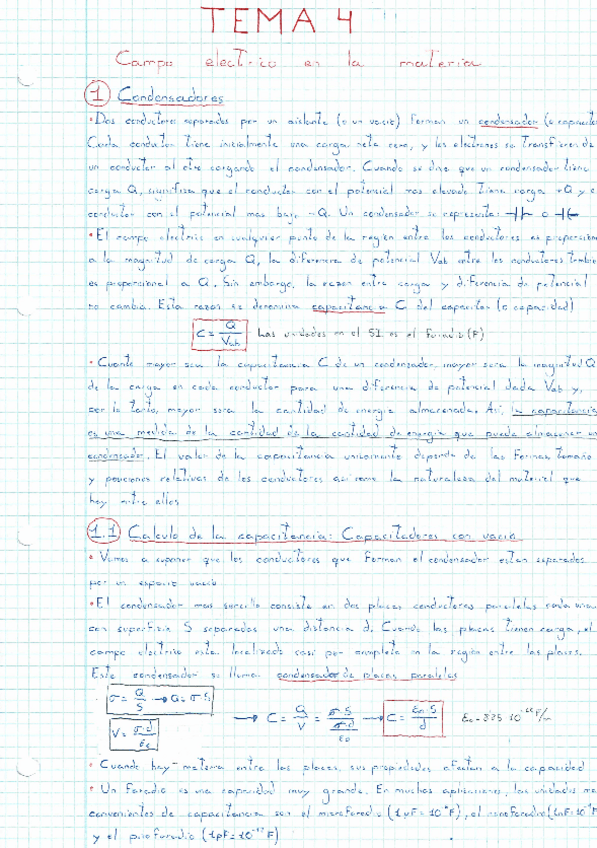 TEMA 4
Campo electrico en la materia
1 Condensadores
• Dos conductores separados por un aislante (o un vacio) forman un condensador (o capacitor
Cada conductor tiene inicialmente una carga neta cero, y los electrones se transfieren de
un conductor al otro cargando el condensador. Cuando se dice que un condensador tiene
carga Q, significa que el conductor con el potencial mas elevado tiene carga +Q y e
conductor con el potencial mas bajo -Q. Un condensador se representa: ⊣⊢ o ⊣(
• El campo electrico en cualquier punto de la region entre los conductores es proporcion
a la magnitud de carga Q, la diferencia de potencial Vab entre los conductores tambie
es proporcional a Q. Sin embargo, la razon entre carga y diferencia de potencial
no cambia. Esta razon se denomina capacitancia C del capacitor (o capacidad)
C = Q / Vab Las unidades en el SI es el Faradio (F)
• Cuanto mayor sea la capacitancia C de un condensador, mayor sera la magnitud Q
de la carga en cada conductor para una diferencia de potencial dada Vab y,
por lo tanto, mayor sera la cantidad de energia almacenada. Asi, la capacitancia
es una medida de la cantidad de la cantidad de energia que puede almacenar un
condensador. El valor de la capacitancia unicamente depende de las formas, tamaño
y posiciones relativas de los conductores asi como la naturaleza del material que
hay entre ellos
1.1 Calculo de la capacitancia: Capacitadores con vacio
• Vamos a suponer que los conductores que forman el condensador estan separados
por un espacio vacio
• El condensador mas sencillo consiste en dos placas conductoras paralelas cada una
con superficie S separadas una distancia d. Cuando las placas tienen carga, el
campo electrico esta localizado casi por completo en la region entre las placas.
Este condensador se llama condensador de placas paralelas
σ = Q/S → Q = σ·S
V = σ·d/ε₀ → C = Q/V = σ·S / (σ·d/ε₀) → C = ε₀·S/d
• Cuando hay materia entre las placas, sus propiedades afectan a la capacidad
• Un Faradio es una capacidad muy grande. En muchas aplicaciones, las unidades ma
convenientes de capacitancia son el microfaradio (1μF = 10⁻⁶F), el nanofaradio (1nF=10⁻⁹F)
y el picofaradio (1pF = 10⁻¹²F)